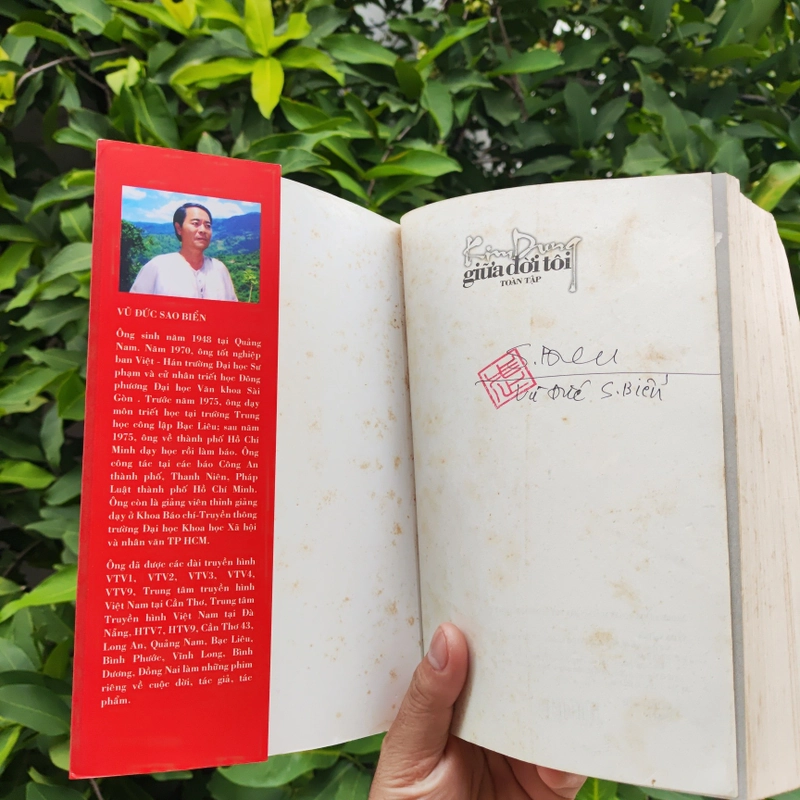 VŨ ĐỨC SAO BIỂN
Ông sinh năm 1948 tại Quảng
Nam. Năm 1970, ông tốt nghiệp
ban Việt - Hán trường Đại học Sư
phạm và cử nhân triết học Đông
phương Đại học Văn khoa Sài
Gòn . Trước năm 1975, ông dạy
môn triết học tại trường Trung
học công lập Bạc Liêu; sau năm
1975, ông về thành phố Hồ Chí
Minh dạy học rồi làm báo. Ông
công tác tại các báo Công An
thành phố, Thanh Niên, Pháp
Luật thành phố Hồ Chí Minh.
Ông còn là giảng viên thỉnh giảng
dạy ở Khoa Báo chí-Truyền thông
trường Đại học Khoa học Xã hội
và nhân văn TP HCM.
Ông đã được các đài truyền hình
VTV1, VTV2, VTV3, VTV4,
VTV9, Trung tâm truyền hình
Việt Nam tại Cần Thơ, Trung tâm
Truyền hình Việt Nam tại Đà
Nẵng, HTV7, HTV9, Cần Thơ 43,
Long An, Quảng Nam, Bạc Liêu,
Bình Phước, Vĩnh Long, Bình
Dương, Đồng Nai làm những phim
riêng về cuộc đời, tác giả, tác
phẩm.
Kim Dung
giữa đời tôi
TOÀN TẬP
Vũ Đức S. Biển